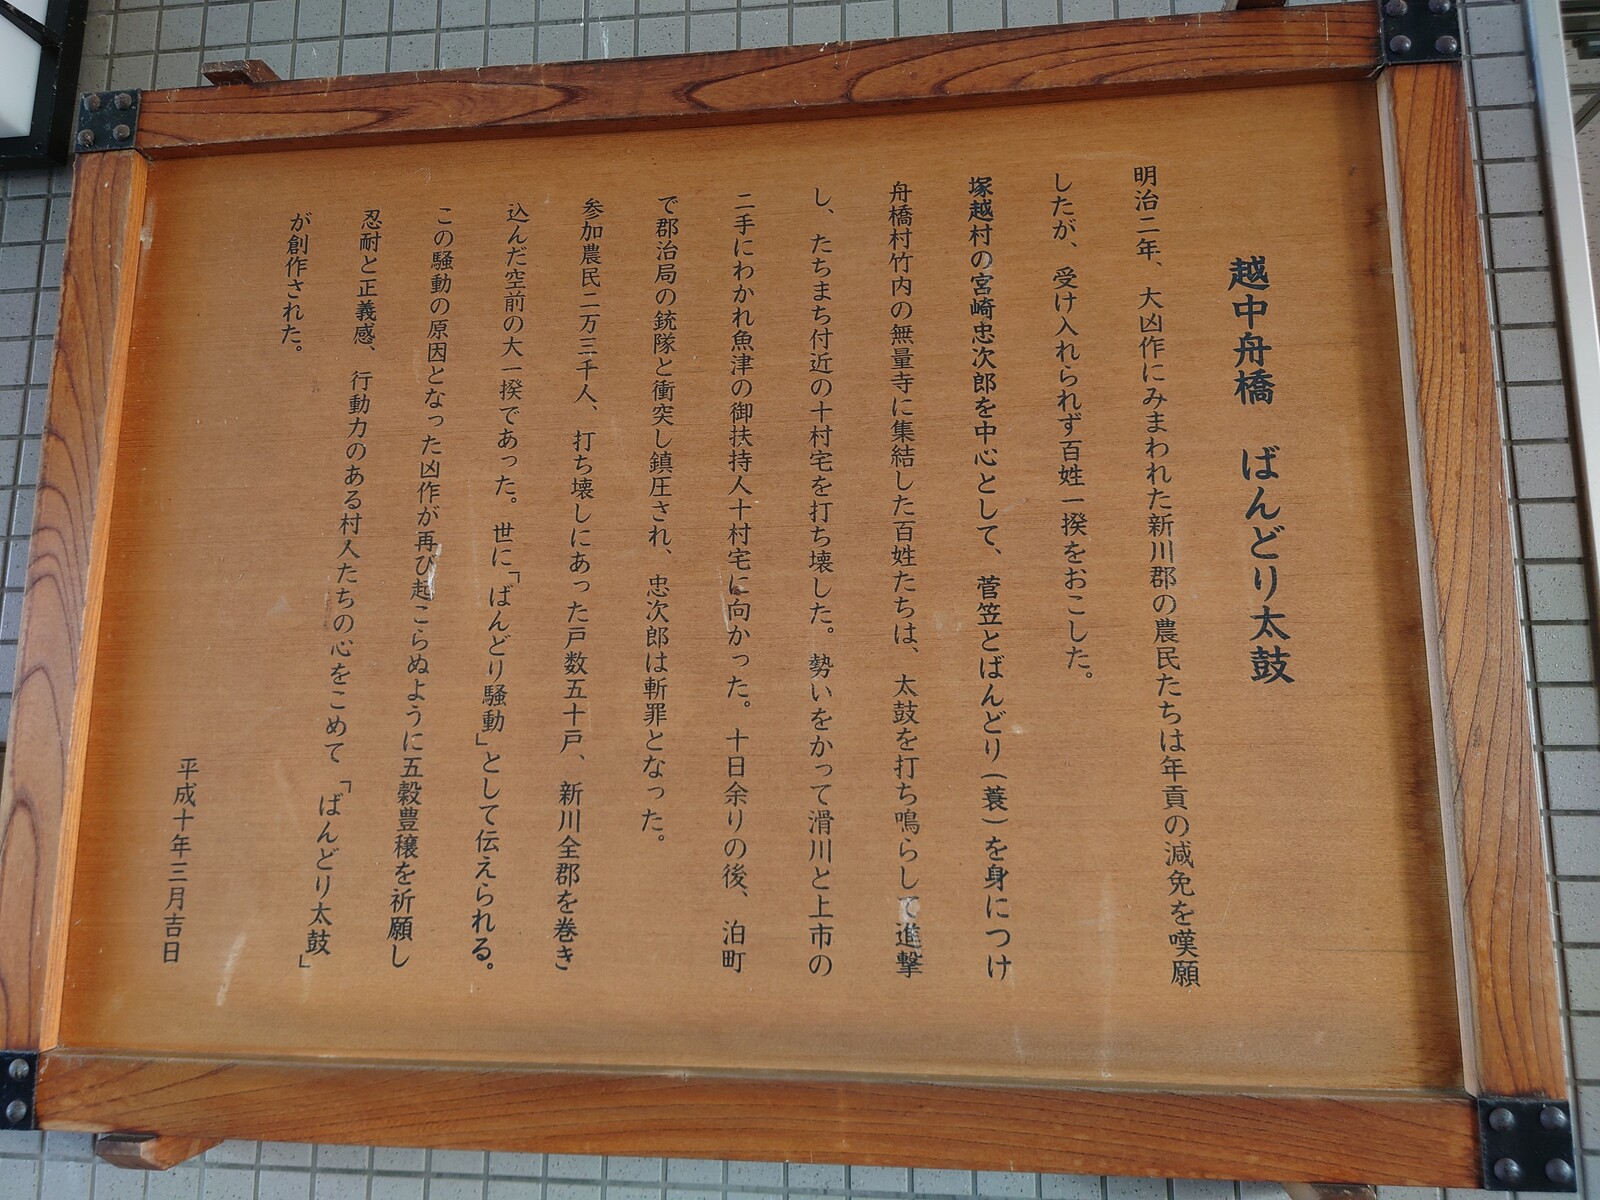 越中舟橋　ばんどり太鼓
明治二年、大凶作にみまわれた新川郡の農民たちは年貢の減免を嘆願
したが、受け入れられず百姓一揆をおこした。
塚越村の宮崎忠次郎を中心として、菅笠とばんどり(蓑)を身につけ
舟橋村竹内の無量寺に集結した百姓たちは、太鼓を打ち鳴らして進撃
し、たちまち付近の十村宅を打ち壊した。勢いをかって滑川と上市の
二手にわかれ魚津の御扶持人十村宅に向かった。十日余りの後、泊町
で郡治局の銃隊と衝突し鎮圧され、忠次郎は斬罪となった。
参加農民二万三千人、打ち壊しにあった戸数五十戸、新川全郡を巻き
込んだ空前の大一揆であった。世に「ばんどり騒動」として伝えられる。
この騒動の原因となった凶作が再び起こらぬように五穀豊穣を祈願し
忍耐と正義感、行動力のある村人たちの心をこめて「ばんどり太鼓」
が創作された。
平成十年三月吉日